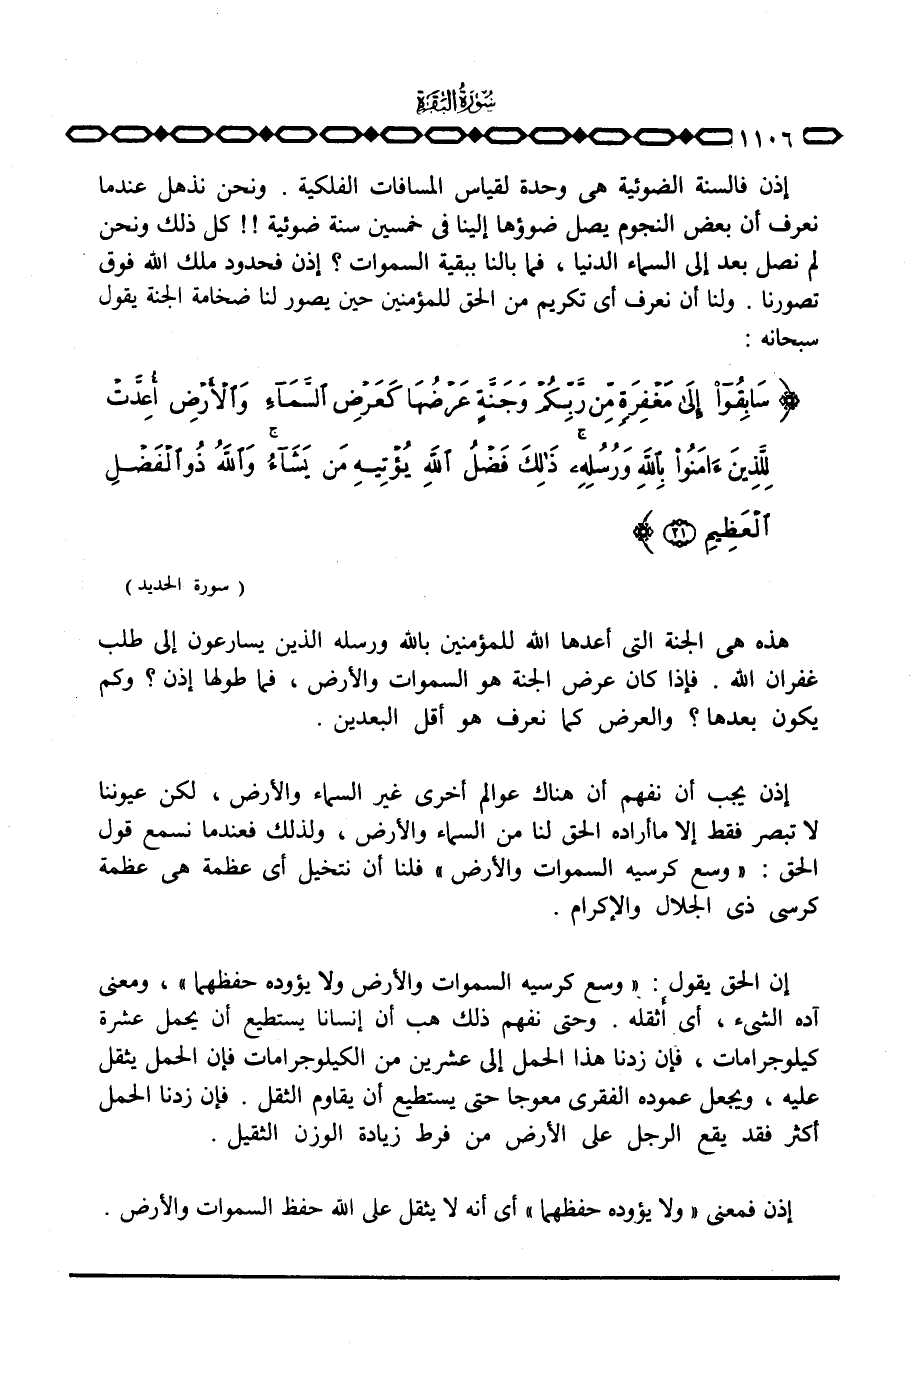 سُورَةُ البَقَرَةِ
١١٠٦
إذن فالسنة الضوئية هى وحدة لقياس المسافات الفلكية . ونحن نذهل عندما
نعرف أن بعض النجوم يصل ضوؤها إلينا فى خمسين سنة ضوئية !! كل ذلك ونحن
لم نصل بعد إلى السماء الدنيا ، فما بالنا ببقية السموات ؟ إذن فحدود ملك الله فوق
تصورنا . ولنا أن نعرف أى تكريم من الحق للمؤمنين حين يصور لنا ضخامة الجنة يقول
سبحانه :
﴿ سَابِقُوٓا۟ إِلَىٰ مَغْفِرَةٍ مِّن رَّبِّكُمْ وَجَنَّةٍ عَرْضُهَا كَعَرْضِ ٱلسَّمَآءِ وَٱلْأَرْضِ أُعِدَّتْ
لِلَّذِينَ ءَامَنُوا۟ بِٱللَّهِ وَرُسُلِهِۦ ۚ ذَٰلِكَ فَضْلُ ٱللَّهِ يُؤْتِيهِ مَن يَشَآءُ ۚ وَٱللَّهُ ذُو ٱلْفَضْلِ
ٱلْعَظِيمِ ٢١ ﴾
( سورة الحديد )
هذه هى الجنة التى أعدها الله للمؤمنين بالله ورسله الذين يسارعون إلى طلب
غفران الله . فإذا كان عرض الجنة هو السموات والأرض ، فما طولها إذن ؟ وكم
يكون بعدها ؟ والعرض كما نعرف هو أقل البعدين .
إذن يجب أن نفهم أن هناك عوالم أخرى غير السماء والأرض ، لكن عيوننا
لا تبصر فقط إلا ماأراده الحق لنا من السماء والأرض ، ولذلك فعندما نسمع قول
الحق : « وسع كرسيه السموات والأرض » فلنا أن نتخيل أى عظمة هى عظمة
كرسى ذى الجلال والإكرام .
إن الحق يقول : « وسع كرسيه السموات والأرض ولا يؤوده حفظهما » ، ومعنى
آده الشىء ، أى أثقله . وحتى نفهم ذلك هب أن إنسانا يستطيع أن يحمل عشرة
كيلوجرامات ، فإن زدنا هذا الحمل إلى عشرين من الكيلوجرامات فإن الحمل يثقل
عليه ، ويجعل عموده الفقرى معوجا حتى يستطيع أن يقاوم الثقل . فإن زدنا الحمل
أكثر فقد يقع الرجل على الأرض من فرط زيادة الوزن الثقيل .
إذن فمعنى « ولا يؤوده حفظهما » أى أنه لا يثقل على الله حفظ السموات والأرض .